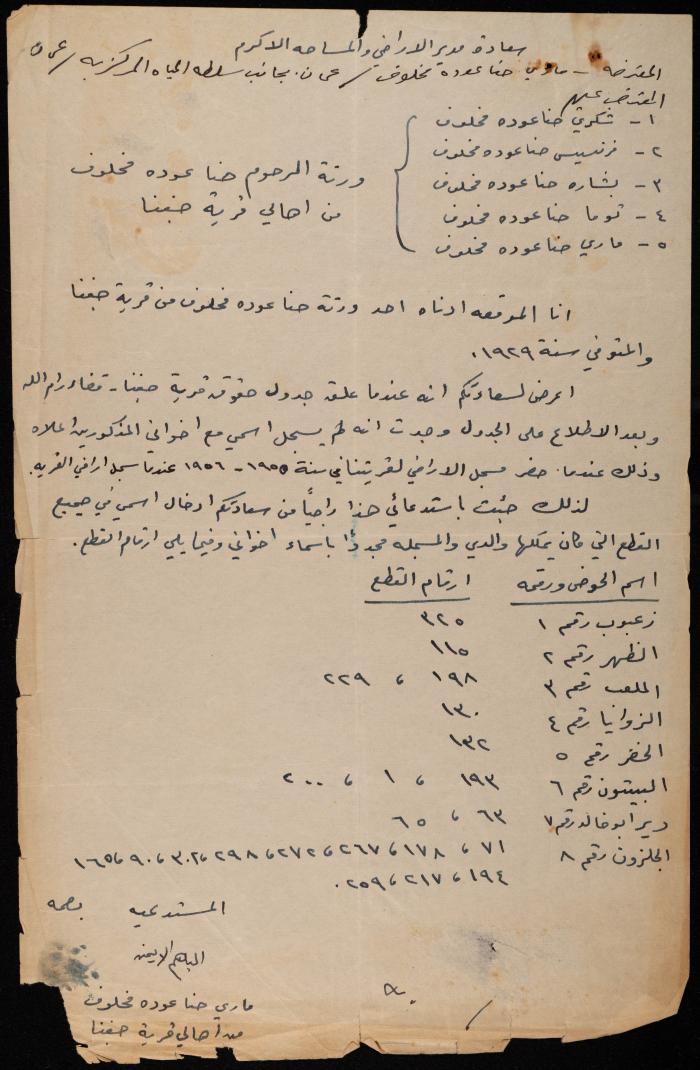 سعادة مدير الاراضي والمساحه الاكرم
المعترضه – ماري حنا عوده مخلوف / عمان. بجانب سلطة المياه المركزية / عمان
المعترض عليهم
١ - شكري حنا عوده مخلوف
٢ - فرنسيس حنا عوده مخلوف
٣ - بشاره حنا عوده مخلوف
٤ - توما حنا عوده مخلوف
٥ - ماري حنا عوده مخلوف
ورثة المرحوم حنا عوده مخلوف
من اهالي قرية جفنا
انا الموقعه ادناه احد ورثة حنا عوده مخلوف من قرية جفنا
والمتوفي سنة ١٩٢٩.
اعرض لسعادتكم انه عندما علق جدول حقوق قرية جفنا - قضاء رام الله
وبعد الاطلاع على الجدول وجدت انه لم يسجل اسمي مع اخواني المذكورين اعلاه
وذلك عندما حضر مسجل الاراضي لقريتنا في سنة ١٩٥٥ - ١٩٥٦ عندما سجل اراضي القريه.
لذلك جئت باستدعائي هذا راجياً من سعادتكم ادخال اسمي في جميع
القطع التي كان يملكها والدي والمسجله مجدداً باسماء اخواني وفيما يلي ارقام القطع.
اسم الحوض ورقمه ارقام القطع
زعبوب رقم ١ ٣٢٥
الظهر رقم ٢ ١١٥
الملعب رقم ٣ ١٩٨ ، ٢٢٩
الزوايا رقم ٤ ١٣٠
الخضر رقم ٥ ١٣٢
البيتون رقم ٦ ١٩٣ ، ١ ، ٢٠٠
دير أبو خالد رقم ٧ ٦٣ ، ٦٥
الجلزون رقم ٨ ٧١ ، ١٧٨ ، ٢٦٧ ، ٢٧٢ ، ٢٩٨ ، ٣٠٢ ، ٩٠ ، ١٦٥
١٩٤ ، ٢١٧ ، ٢٥٩.
المستدعيه بصمة
الباهم الايمن
ماري حنا عوده مخلوف
من أهالي قرية جفنا